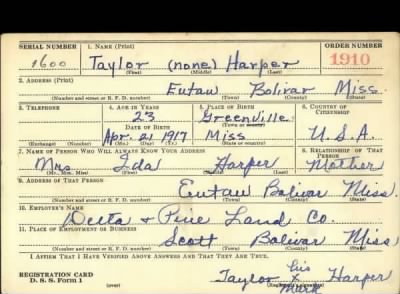 SERIAL NUMBER 1. NAME (Print) ORDER NUMBER
1600 Taylor (none) Harper 1910
(First) (Middle) (Last)
2. ADDRESS (Print)
Eutaw Bolivar Miss.
(Number and street or R. F. D. number) (Town) (County) (State)
3. TELEPHONE 4. AGE IN YEARS 5. PLACE OF BIRTH 6. COUNTRY OF CITIZENSHIP
23 Greenville
DATE OF BIRTH (Town or county)
Apr. 21 1917 Miss U.S.A.
(Exchange) (Number) (Mo.) (Day) (Yr.) (State or country)
7. NAME OF PERSON WHO WILL ALWAYS KNOW YOUR ADDRESS 8. RELATIONSHIP OF THAT PERSON
Mrs Ida Harper Mother
(Mr., Mrs., Miss) (First) (Middle) (Last)
9. ADDRESS OF THAT PERSON
Eutaw Bolivar Miss.
(Number and street or R. F. D. number) (Town) (County) (State)
10. EMPLOYER'S NAME
Delta & Pine Land Co.
11. PLACE OF EMPLOYMENT OR BUSINESS
Scott Bolivar Miss
(Number and street or R. F. D. number) (Town) (County) (State)
I AFFIRM THAT I HAVE VERIFIED ABOVE ANSWERS AND THAT THEY ARE TRUE.
REGISTRATION CARD his
D. S. S. Form 1 Taylor x Harper
mark